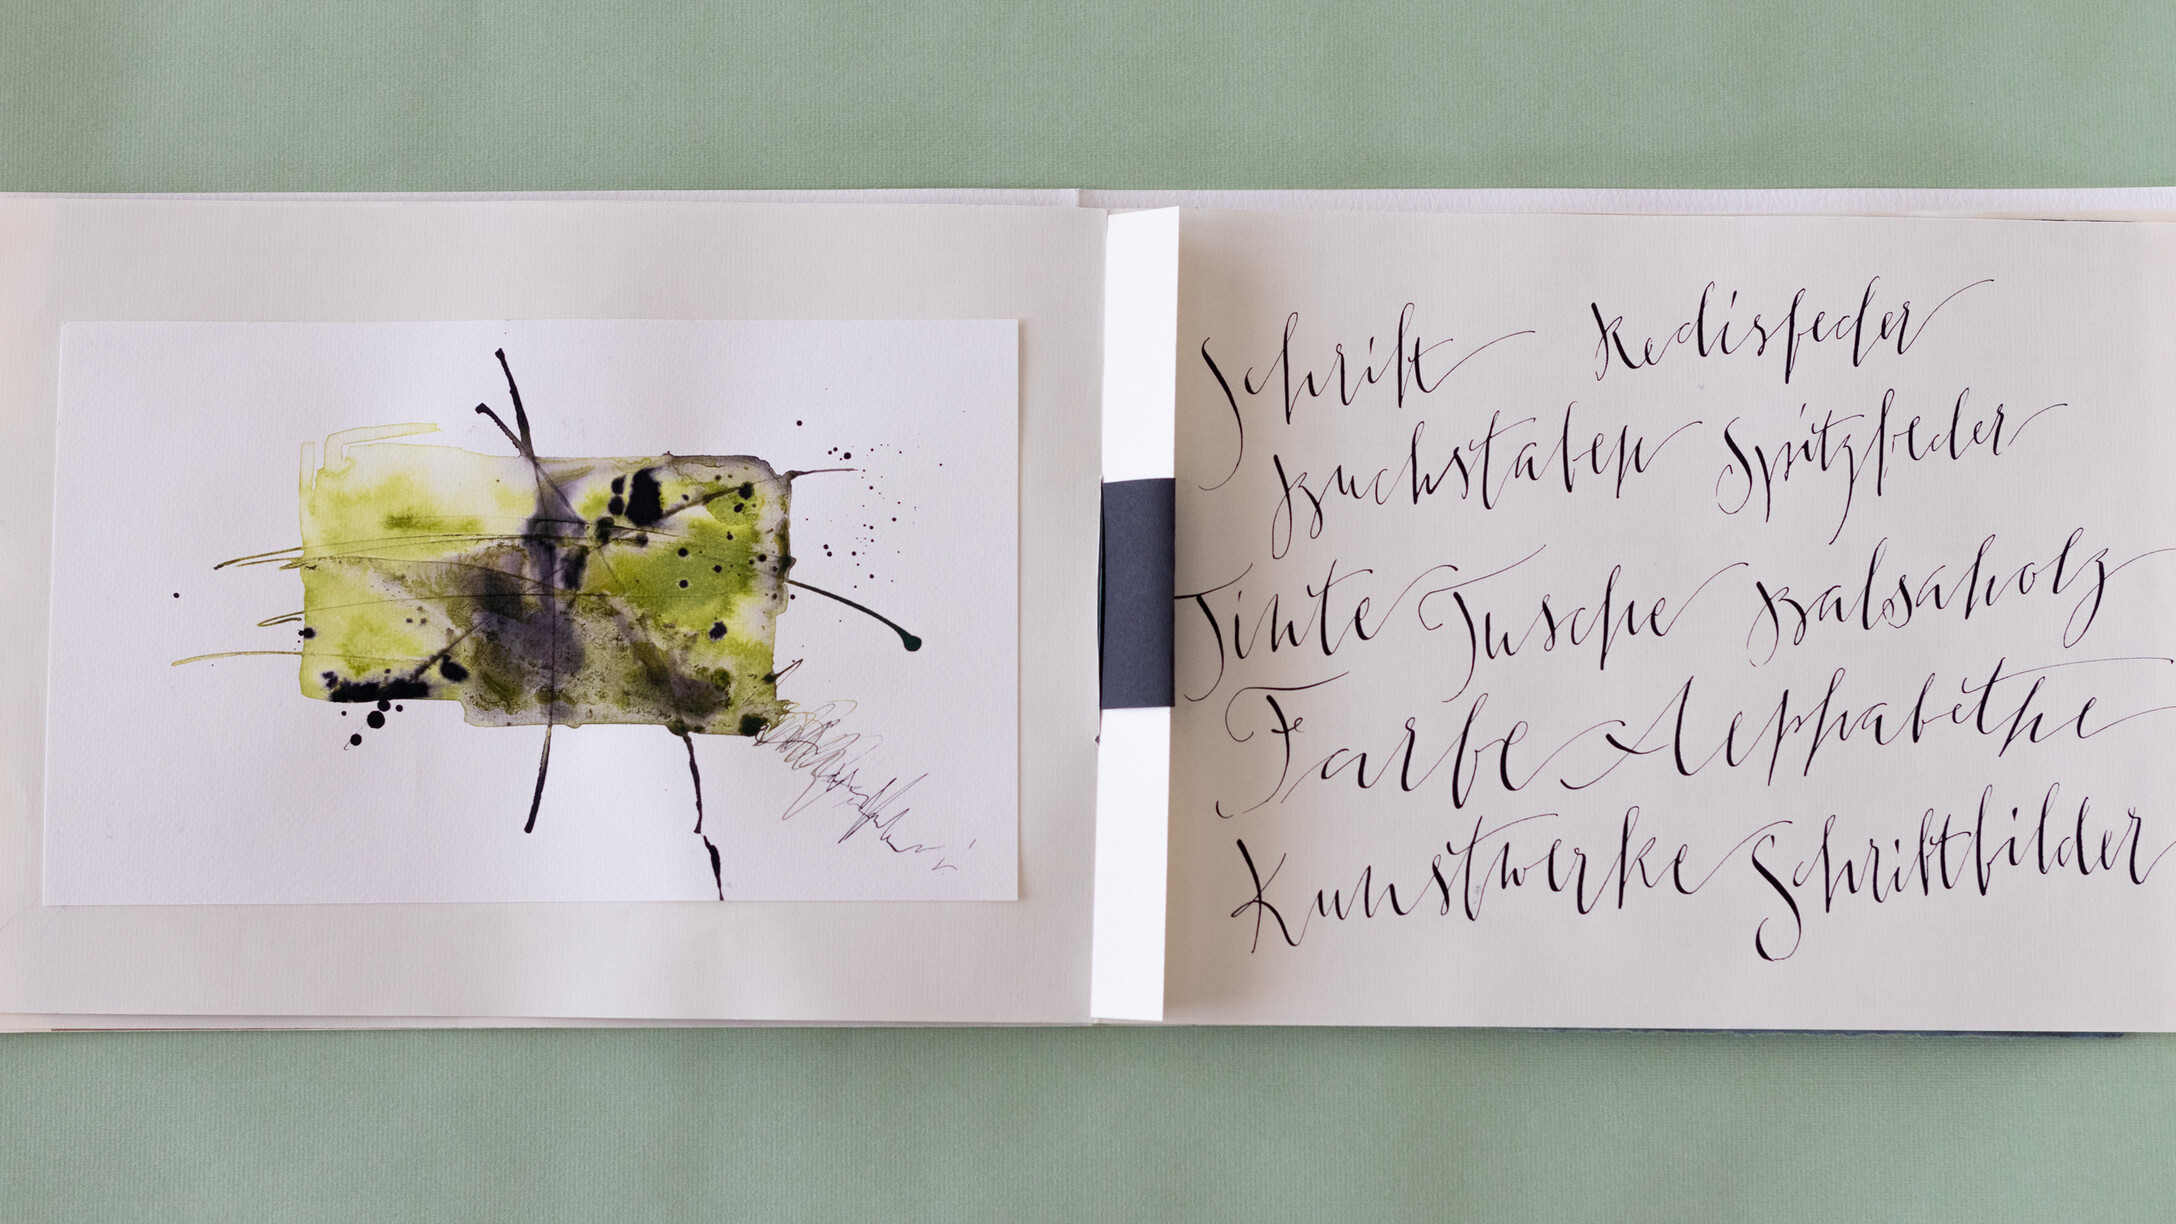 Schrift Redisfeder
Buchstaben Spitzfeder
Tinte Tusche Balsaholz
Farbe Aephabethe
Kunstwerke Schriftbilder